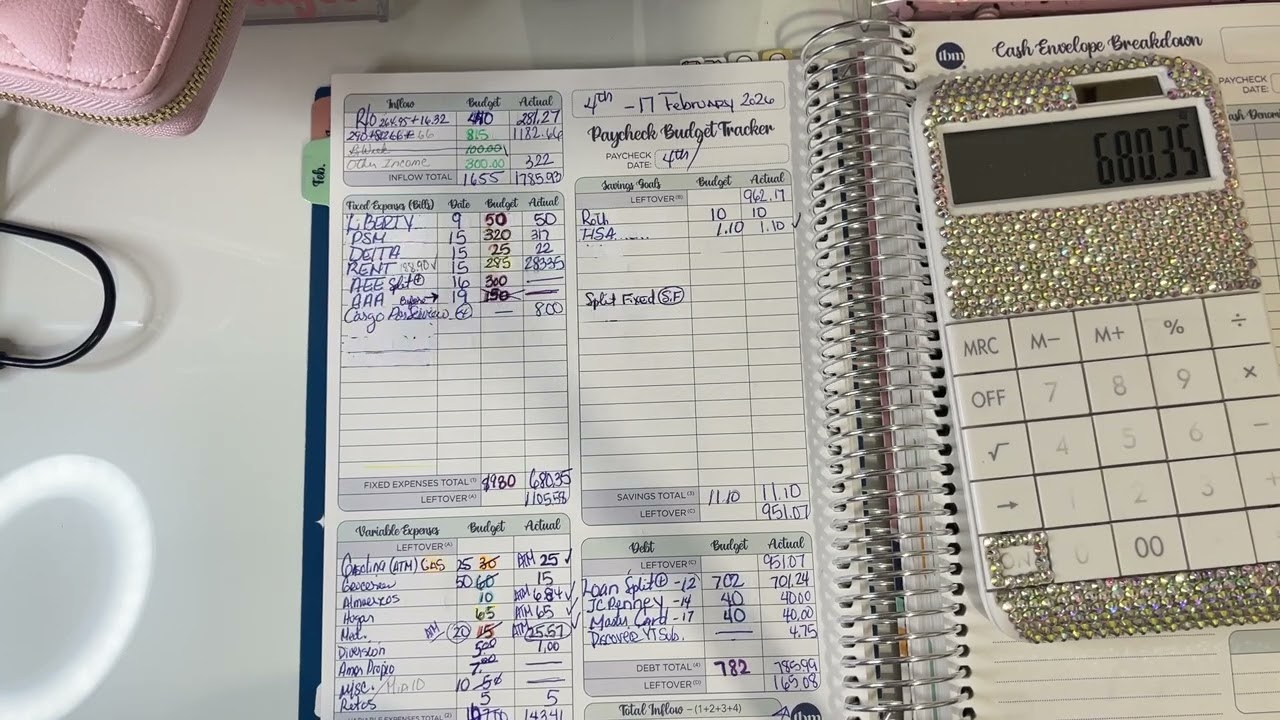 Inflow Budget Actual
R/O 264.95 + 16.32 440 281.27
815 1182.66
100.00
Other Income 300.00 322
INFLOW TOTAL 1655 1785.93
Fixed Expenses (Bills) Date Budget Actual
LIBERTY 9 50 50
DSM 15 320 317
DELTA 15 25 22
RENT 15 285 283.35
AEE Split 16 300 —
AAA 19 150 —
Cargo 8.00
FIXED EXPENSES TOTAL (1) $930 680.35
LEFTOVER (A) 1105.58
Variable Expenses Budget Actual
LEFTOVER (A)
Gasolina (ATM) GAS 25 30 ATM 25
50 60 15
Almuerzos 10 ATM 6.84
Hogar 65 ATM 65
ATM 20 15 ATM 25.57
Diversión 5.00 1.00
Amor Propio 7.00 —
Misc. 10 5 —
Retos 5 5
VARIABLE EXPENSES TOTAL (2) 143.41
4th - 17 February 2026
Paycheck Budget Tracker
PAYCHECK DATE: 4th
Savings Goals Budget Actual
LEFTOVER (B) 962.17
Roth 10 10
HSA 1.10 1.10
Split Fixed (S.F)
SAVINGS TOTAL (3) 11.10 11.10
LEFTOVER (C) 951.07
Debt Budget Actual
LEFTOVER (C) 951.07
Loan Split - 12 702 701.24
JC Penney - 14 40 40.00
Master Card - 17 40 40.00
Discover YT Sub. — 4.75
DEBT TOTAL (4) 782 785.99
LEFTOVER (D) 165.08
Total Inflow - (1+2+3+4)
tbm
Feb.
tbm
Cash Envelope Breakdown
PAYCHECK
DATE:
680.35
MRC M− M+ % ÷
OFF 7 8 9 ×
√ 4 5 6 −
→ 1 2 3 +
ON 0 00